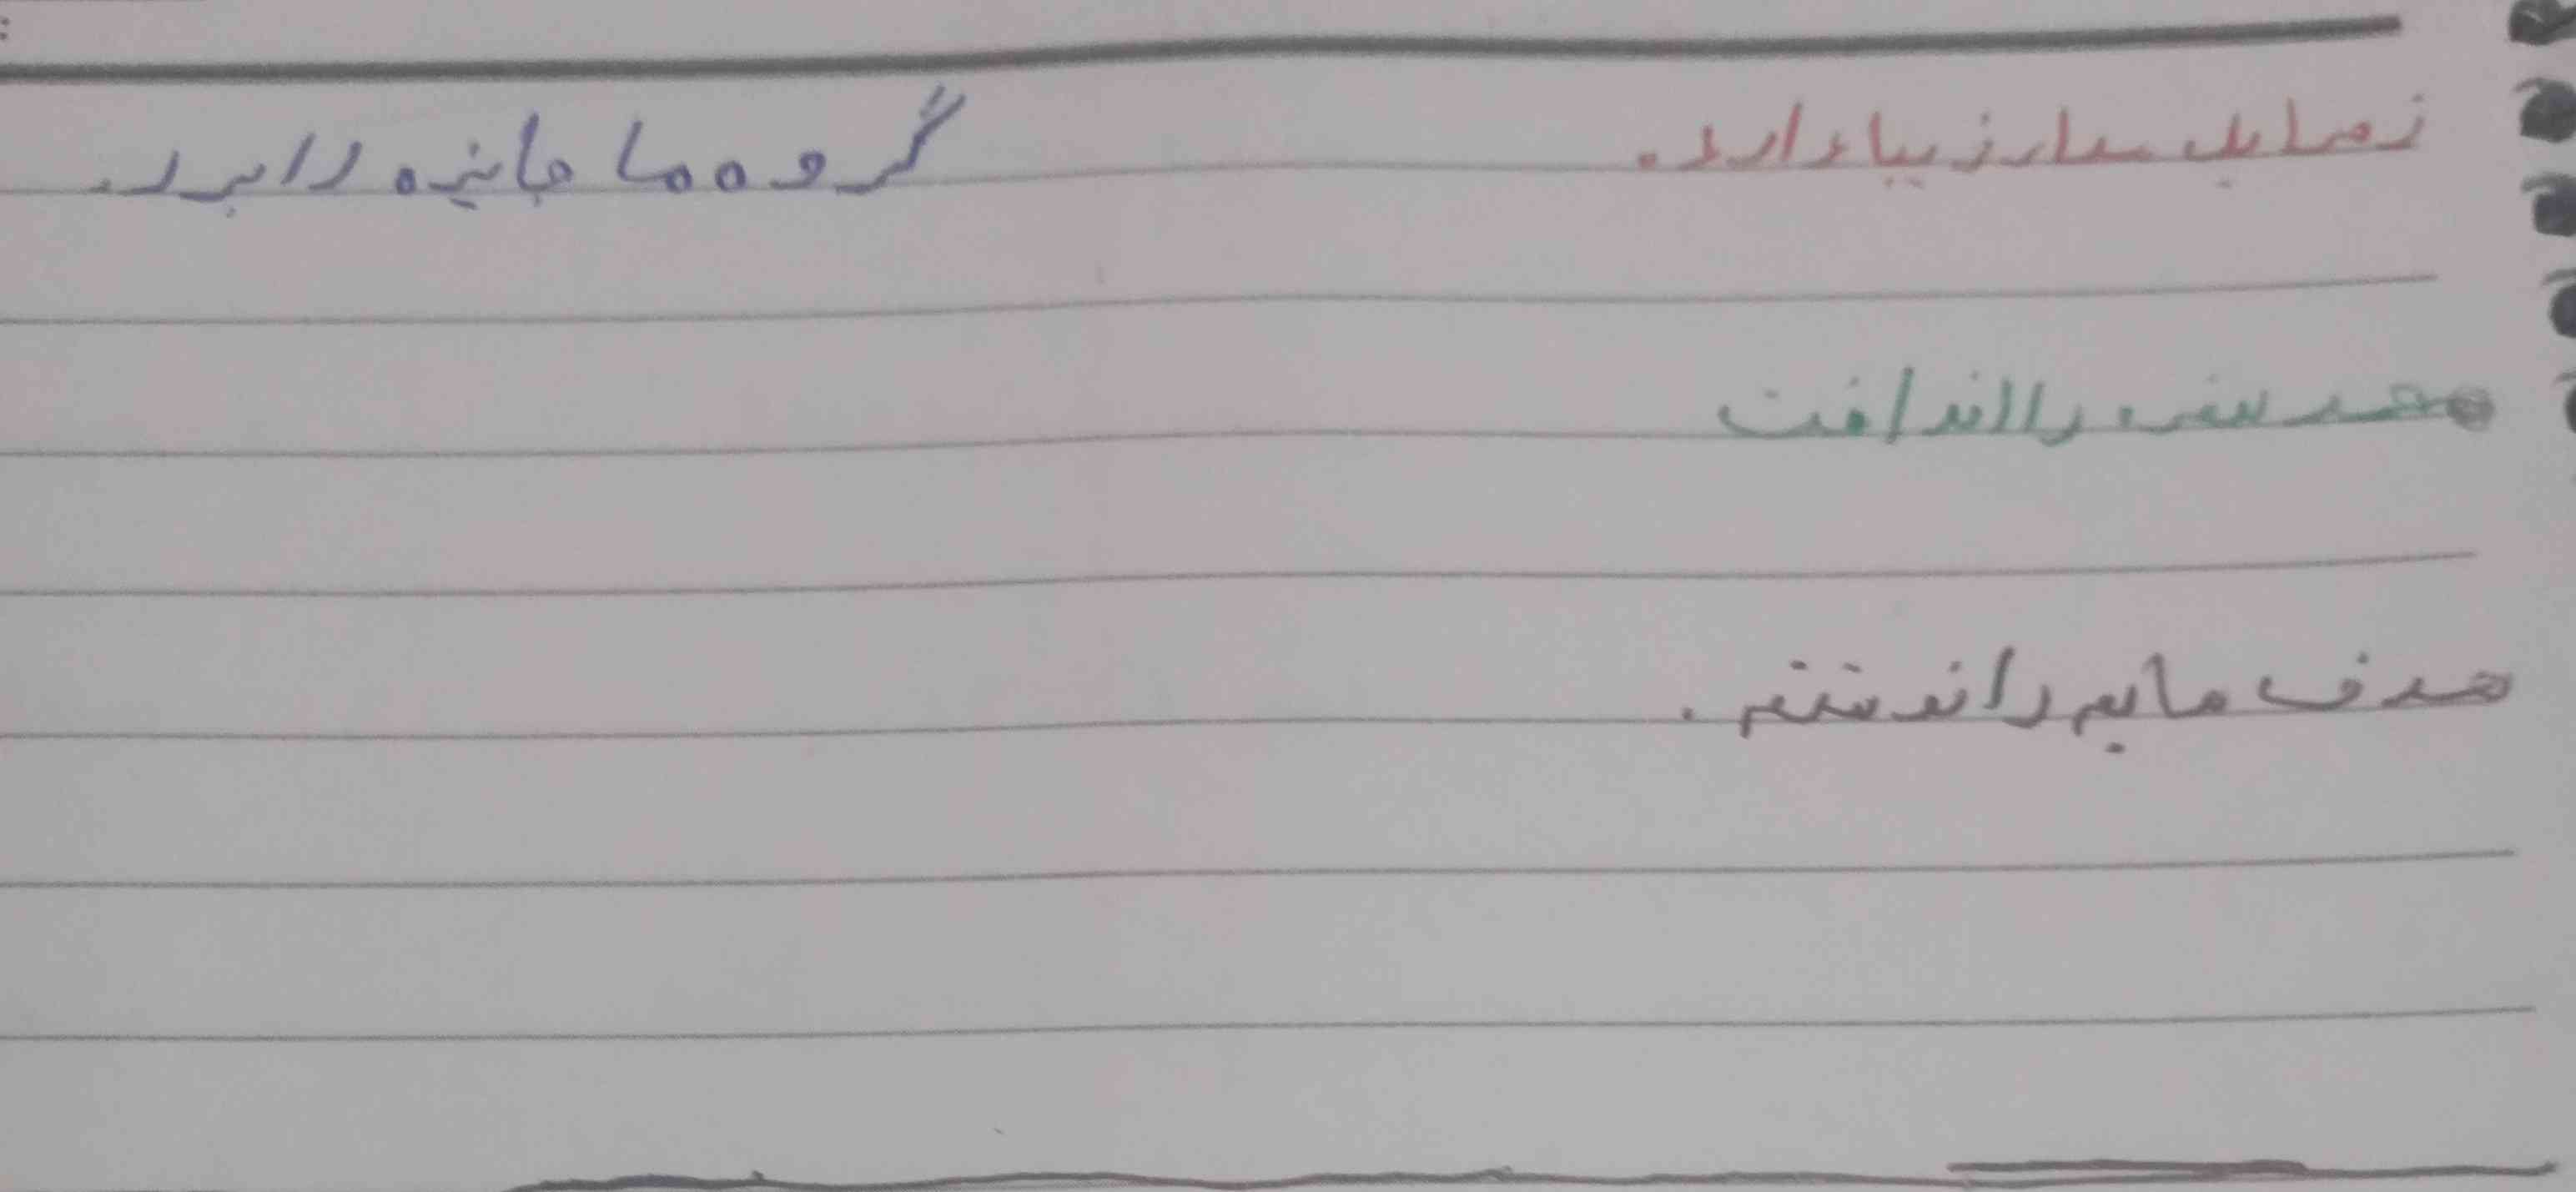 زهرا یک مداد زیبا دارد. گروه ما جایزه را برد.
محمد سفره را انداخت
هدف مایم را نوشتم.